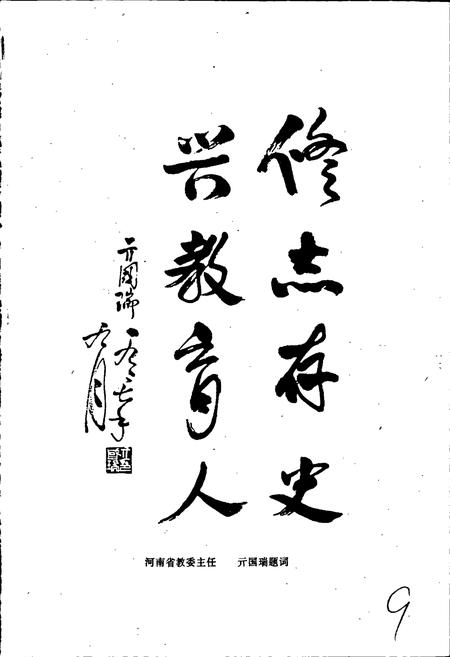 修志存史
兴教育人
亓國瑞 一九八七年
九月
河南省教委主任 亓国瑞题词
9